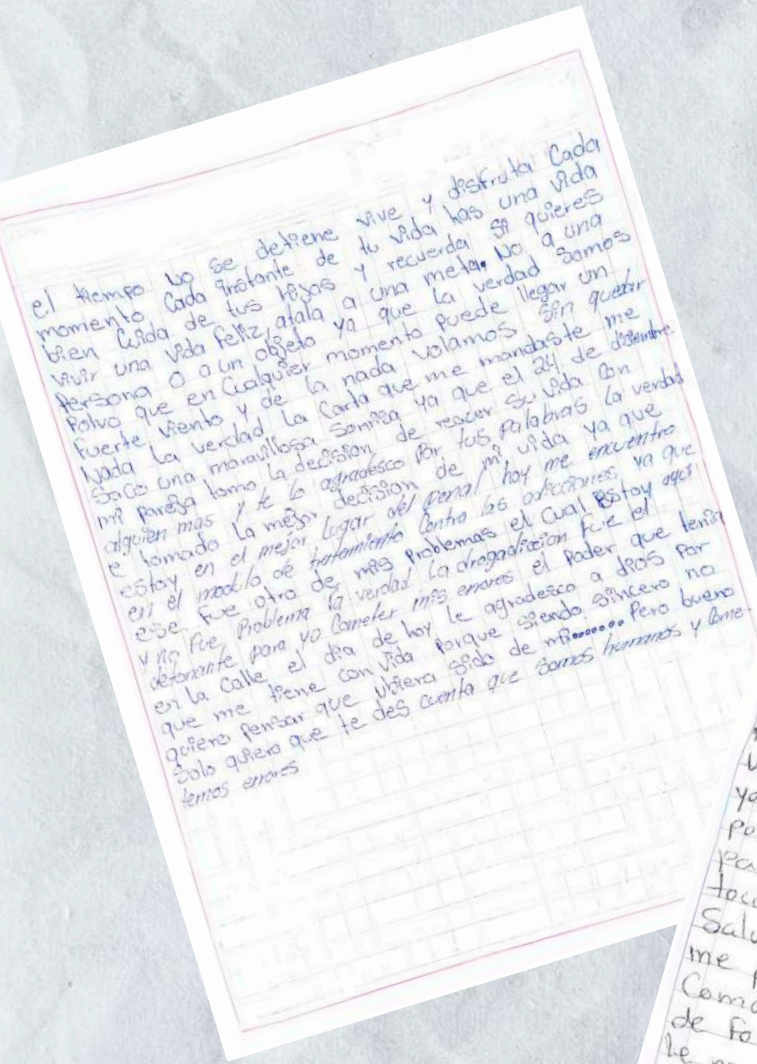 el tiempo no se detiene vive y disfruta Cada
momento Cada instante de tu vida has una vida
bien Cuida de tus hijos y recuerda si quieres
vivir una vida feliz, atala a una meta. No a una
Persona O a un objeto ya que la verdad Somos
Polvo que en Cualquier momento Puede llegar un
fuerte viento y de la nada volamos sin quedar
Nada la verdad la Carta que me mandaste me
Saco una maravillosa sonrisa ya que el 24 de diciembre
mi pareja tomo la decision de reacer su vida Con
alguien mas y te lo agradesco Por tus Palabras la verdad
e tomado la mejor decision de mi vida ya que
estoy en el mejor lugar del penal hoy me encuentro
en el modulo de tratamiento Contra las adicciones ya que
ese fue otro de mis Problemas el Cual estoy aqui
y no fue Problema la verdad la drogadiccion fue el
detonante para yo Cometer mis errores el Poder que tenia
en la Calle el dia de hoy le agradesco a dios Por
que me tiene con vida Porque siendo sincero no
quiero Pensar que ubiera sido de mi....... Pero bueno
Solo quiero que te des cuenta que Somos humanos y Come-
temos errores
ya
Salu
me p
Como
de Fa